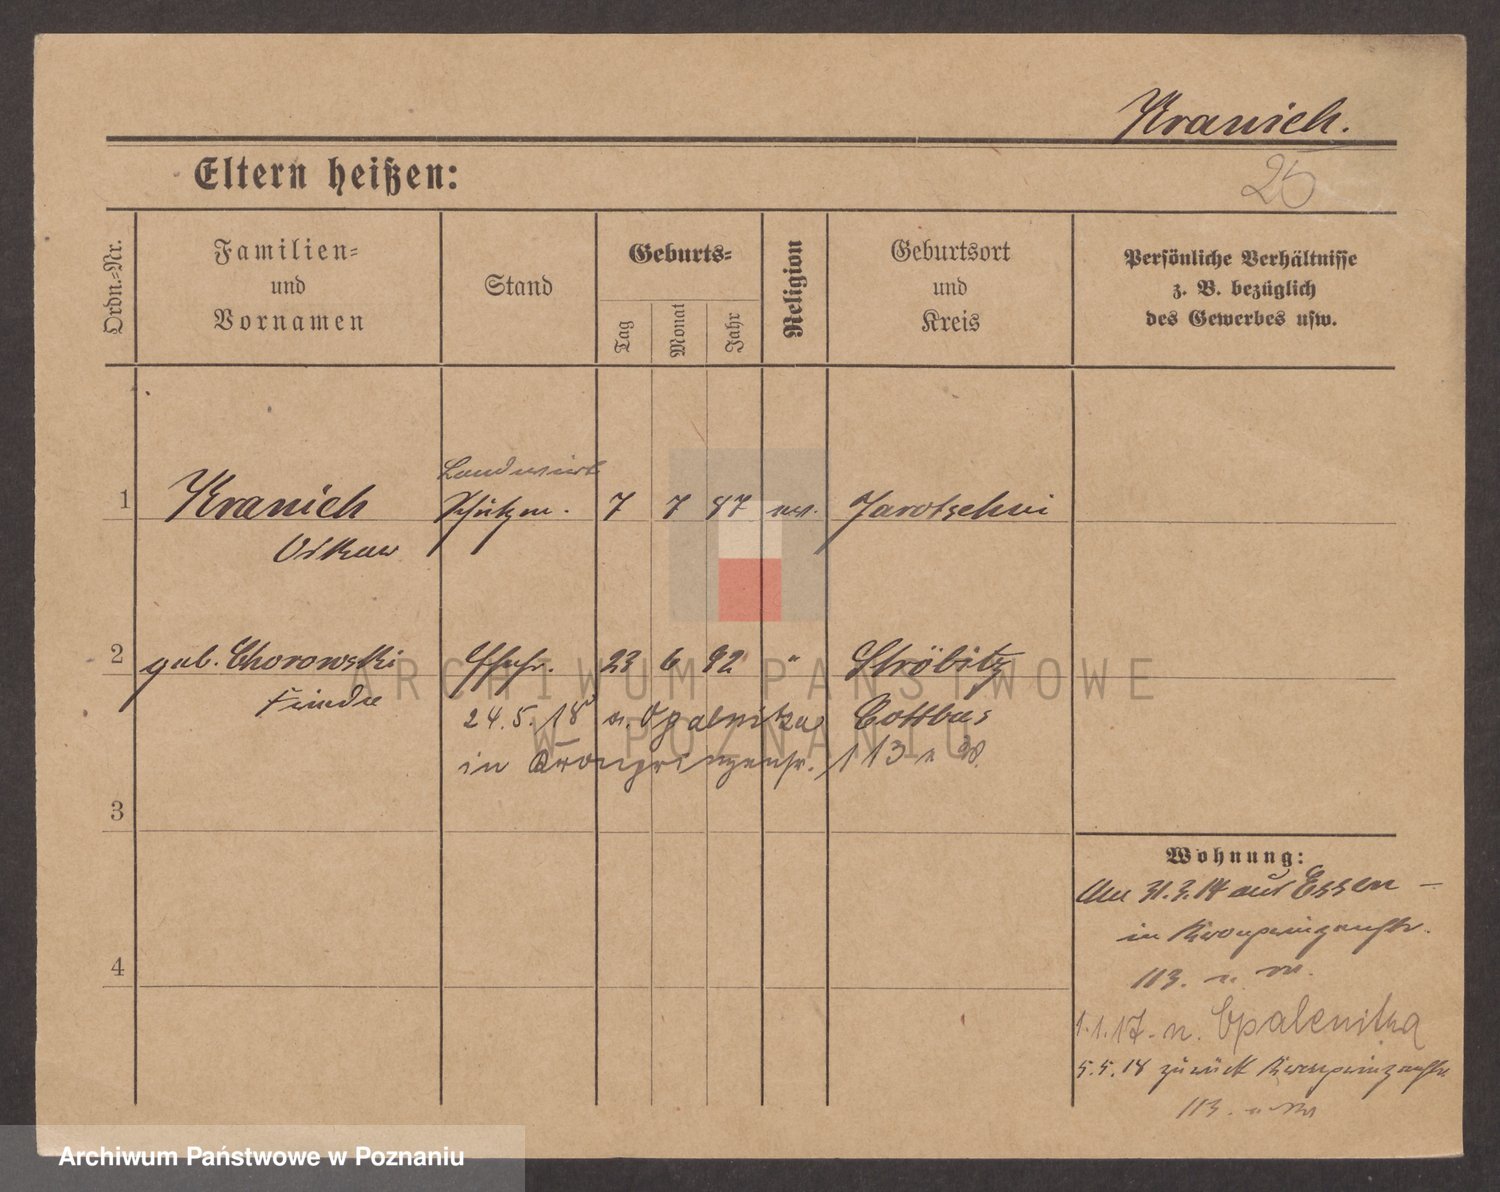 Kranich.
25
Eltern heißen:
Ordn.-Nr.
Familien-
und
Vornamen
Stand
Geburts-
Tag
Monat
Jahr
Religion
Geburtsort
und
Kreis
Persönliche Verhältnisse
z. B. bezüglich
des Gewerbes usw.
Landwirt
1 Kranich Schutzm. 7 7 87 ev. Jarotschin
Oskar
2 geb. Chorowski Ehefr. 23 6 92 " Ströbitz
Frieda
24.5.18 n. Opalenitza Cottbus
in Kronprinzenstr. 113
3
4
Wohnung:
Am 31.3.14 aus Essen –
in Kronprinzenstr.
113.
1.1.17. n. Opalenitza
5.5.18 zurück Kronprinzenstr.
113.
ARCHIWUM PAŃSTWOWE
W POZNANIU
Archiwum Państwowe w Poznaniu